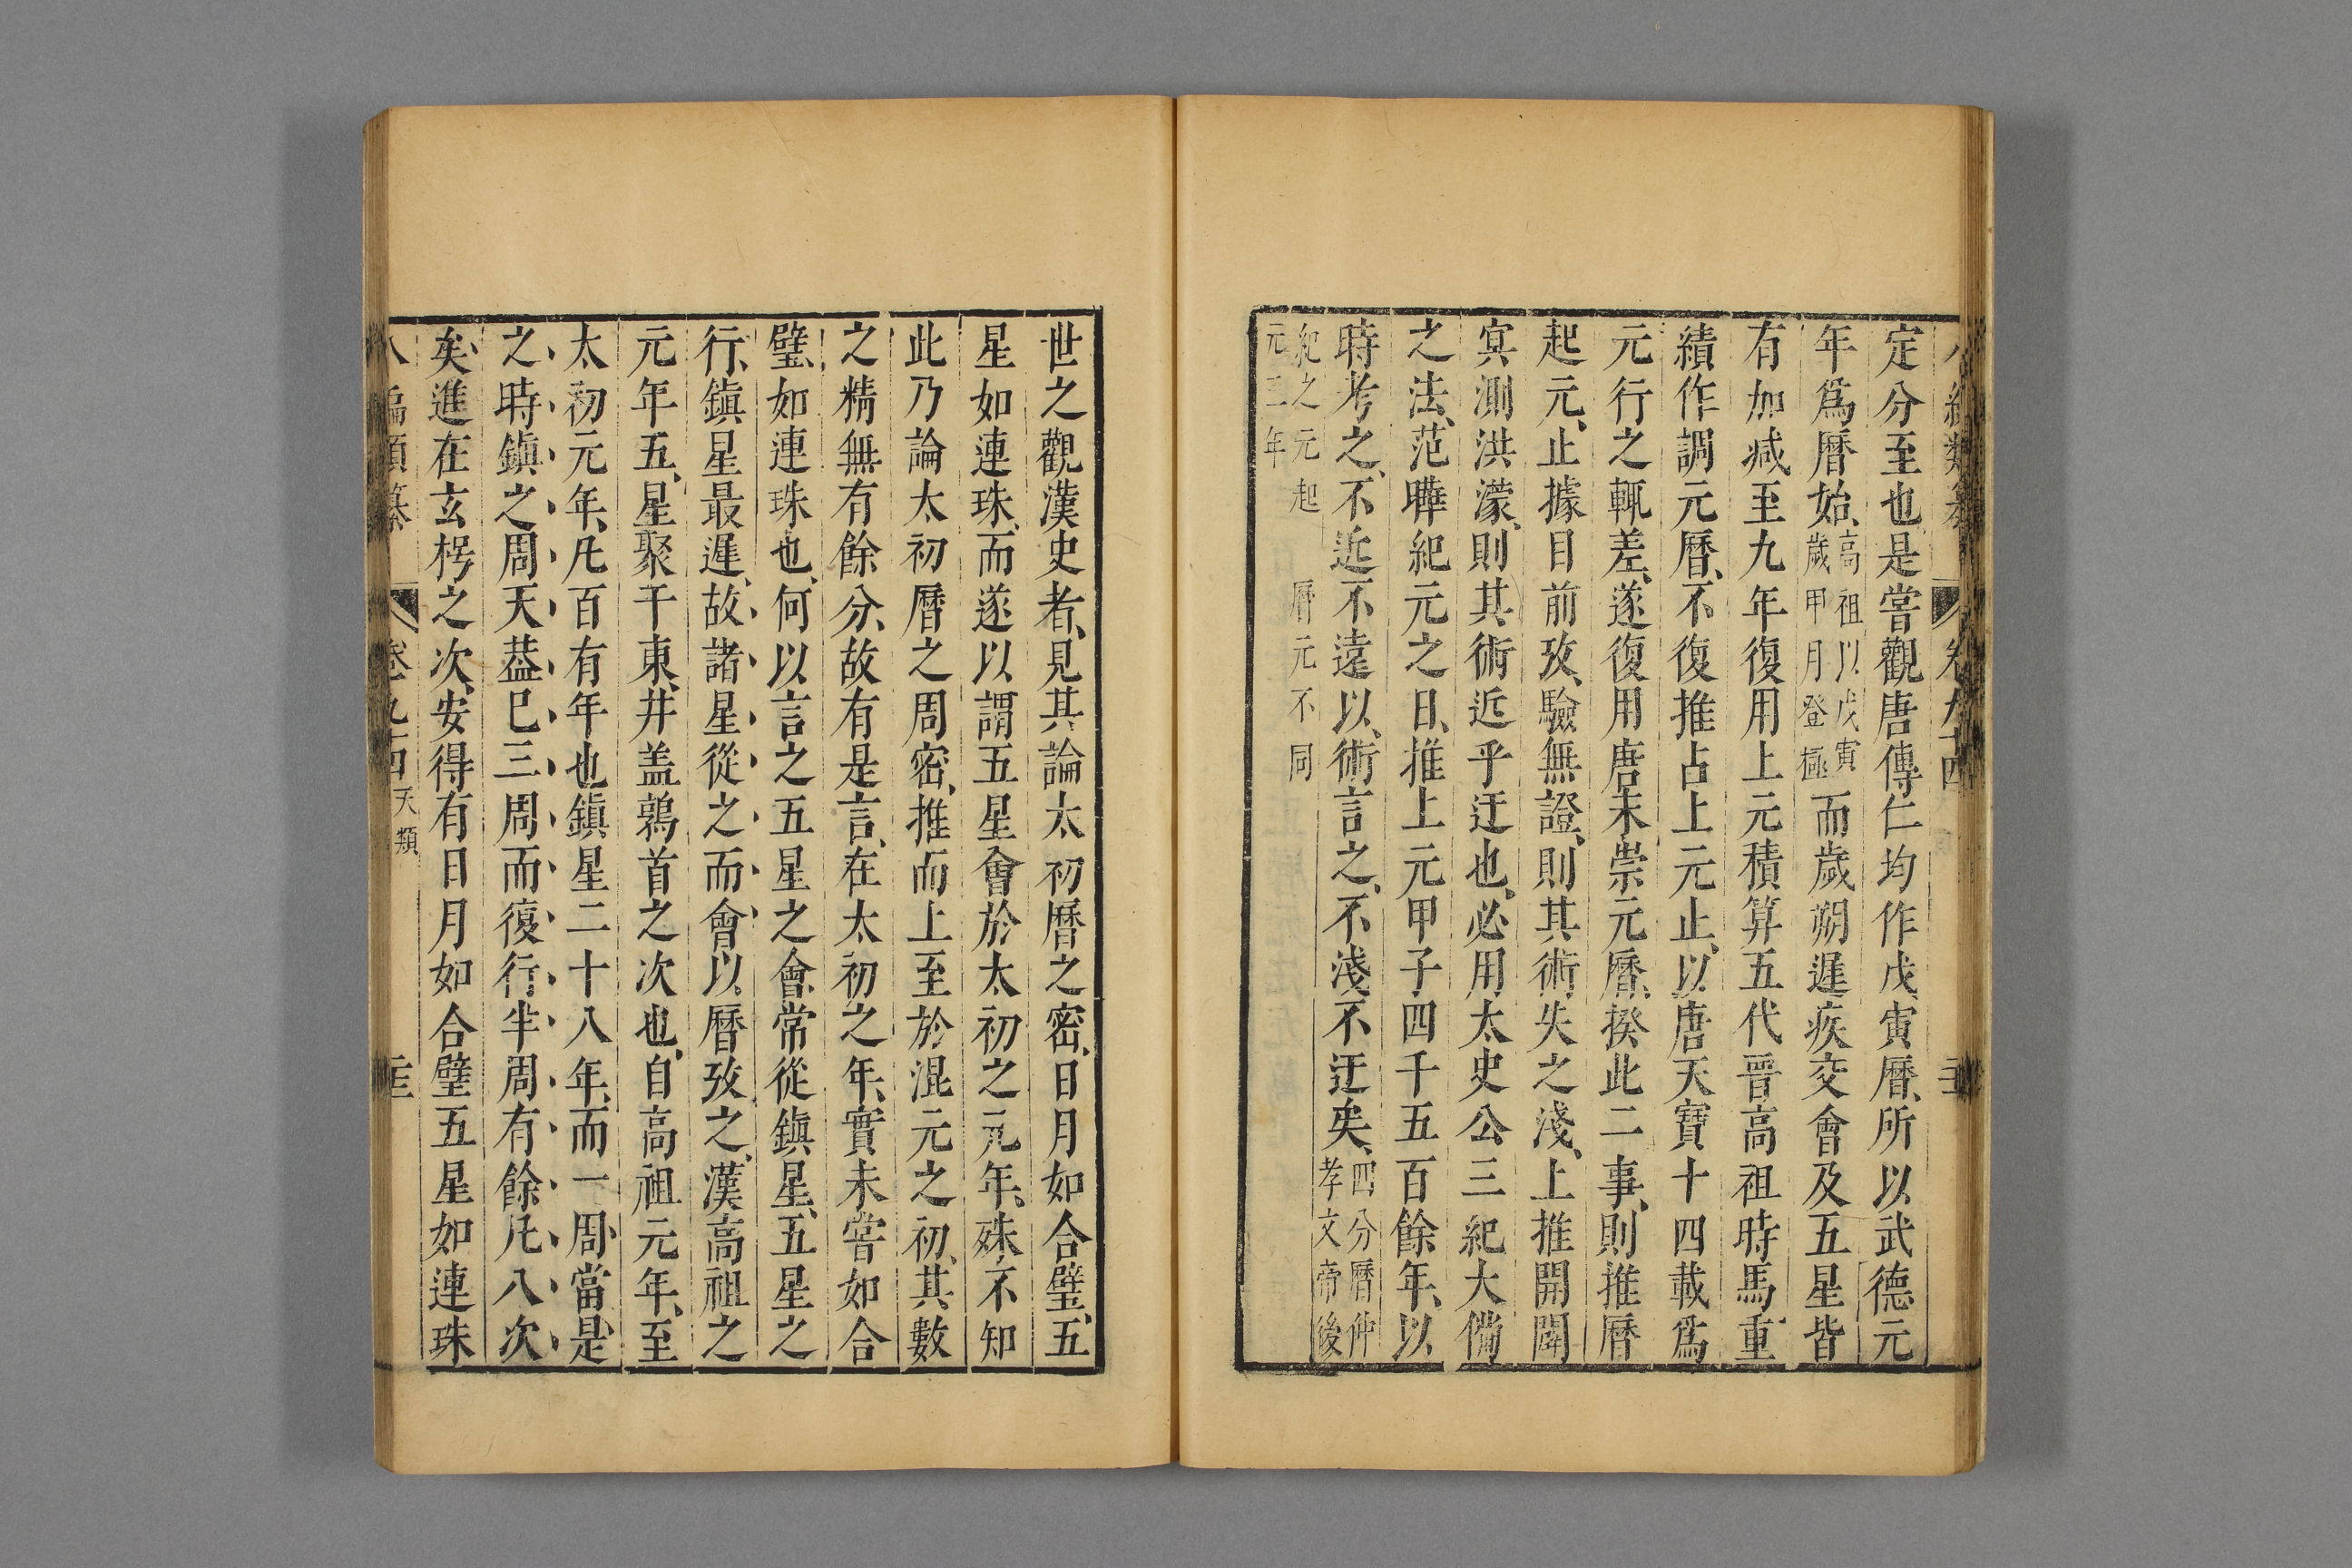 定分至也是嘗觀唐傳仁均作戊寅曆所以武德元
年爲曆始高祖以戊寅歲甲月登極而歲朔遲疾交會及五星皆
有加减至九年復用上元積算五代晉高祖時馬重
績作調元曆不復推占上元止以唐天寶十四載爲
元行之輒差遂復用唐未崇元曆揆此二事則推曆
起元止據目前攷驗無證則其術失之淺上推開闢
寅測洪濛則其術近乎迂也必用太史公三紀大備
之法范曄紀元之日推上元甲子四千五百餘年以
時考之不近不遠以術言之不淺不迂矣四分曆仲孝文帝後
紀之元起曆元不同
元三年
世之觀漢史者見其論太初曆之密日月如合璧五
星如連珠而遂以謂五星會於太初之元年殊不知
此乃論太初曆之周密推而上至於混元之初其數
之精無有餘分故有是言在太初之年實未嘗如合
璧如連珠也何以言之五星之會常從鎮星五星之
行鎮星最遲故諸星從之而會以曆攷之漢高祖之
元年五星聚于東井盖鶉首之次也自高祖元年至
太初元年凡百有年也鎮星二十八年而一周當是
之時鎮之周天葢巳三周而復行半周有餘凡八次
矣進在玄枵之次安得有日月如合璧五星如連珠
八編類纂 卷九十四 天類